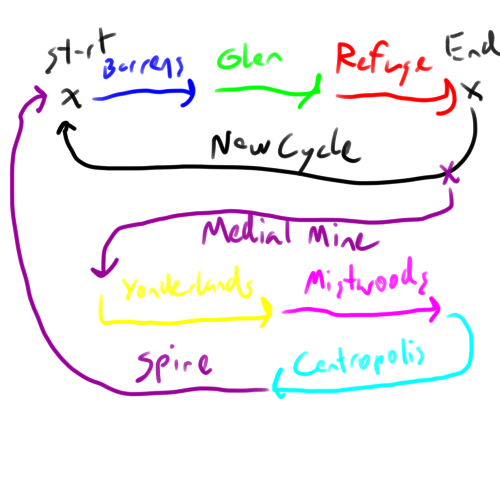 Start Barrens Glen Refuge End
x x
New Cycle
x
Medial Mine
Yonderlands Mistwoods
Spire Centropolis